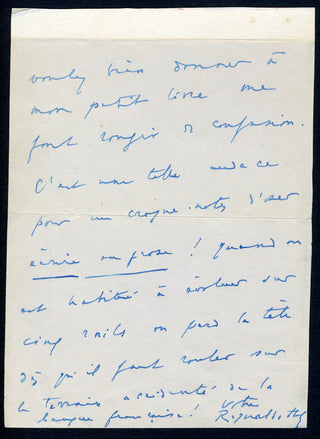 voulez bien donner à
mon petit livre me
font rougir de confusion.
C'est une telle audace
pour un croque-notes d'oser
écrire en prose ! Quand on
est habitué à évoluer sur
cinq rails on perd la tête
dès qu'il faut rouler sur
le terrain accidenté de la
langue française ! Votre